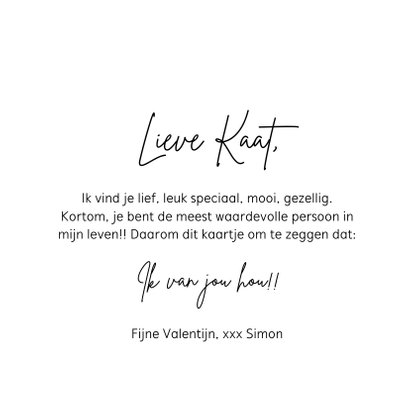 Lieve Kaat,
Ik vind je lief, leuk speciaal, mooi, gezellig.
Kortom, je bent de meest waardevolle persoon in
mijn leven!! Daarom dit kaartje om te zeggen dat:
Ik van jou hou!!
Fijne Valentijn, xxx Simon